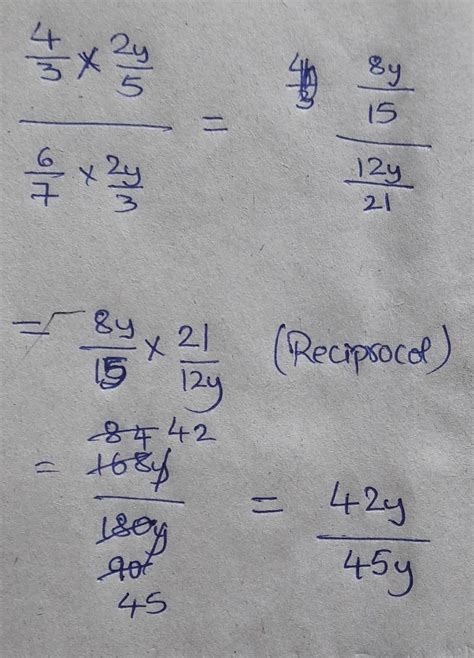 4/3 × 2y/5
6/7 × 2y/3
= 8y/15
12y/21
= 8y/15 × 21/12y (Reciprocol)
84 42
= 168y/180y = 42y/45y
90
45